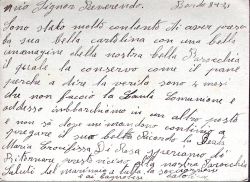 mio Signor Reverendo.
Sono stato molto contento di aver preso
la sua bella cartolina con una bella
immagine della nostra bella Parocchia
il quale la conservo come il pane
perchè a dire la verità sono 4 mesi
che non faccio la Santa Comunione e
addesso imbarchiamo in un altro posto
e non sò dove mi mandono continuo a
pregare il suo bello Ricordo la
Maria Crocifissa Di Rosa speriamo di
Ritornare presto vicino alla nostra Parocchia
Saluti del marinaio a tutti i
e ai